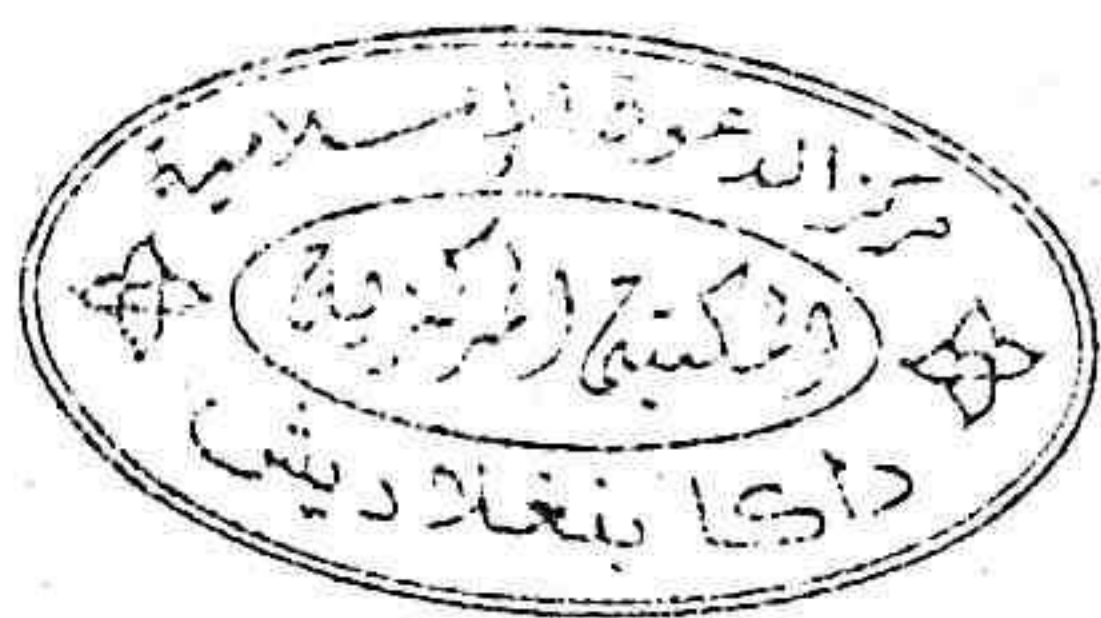 مركز الدعوة الإسلامية
المكتبة المركزية
داكا بنغلاديش